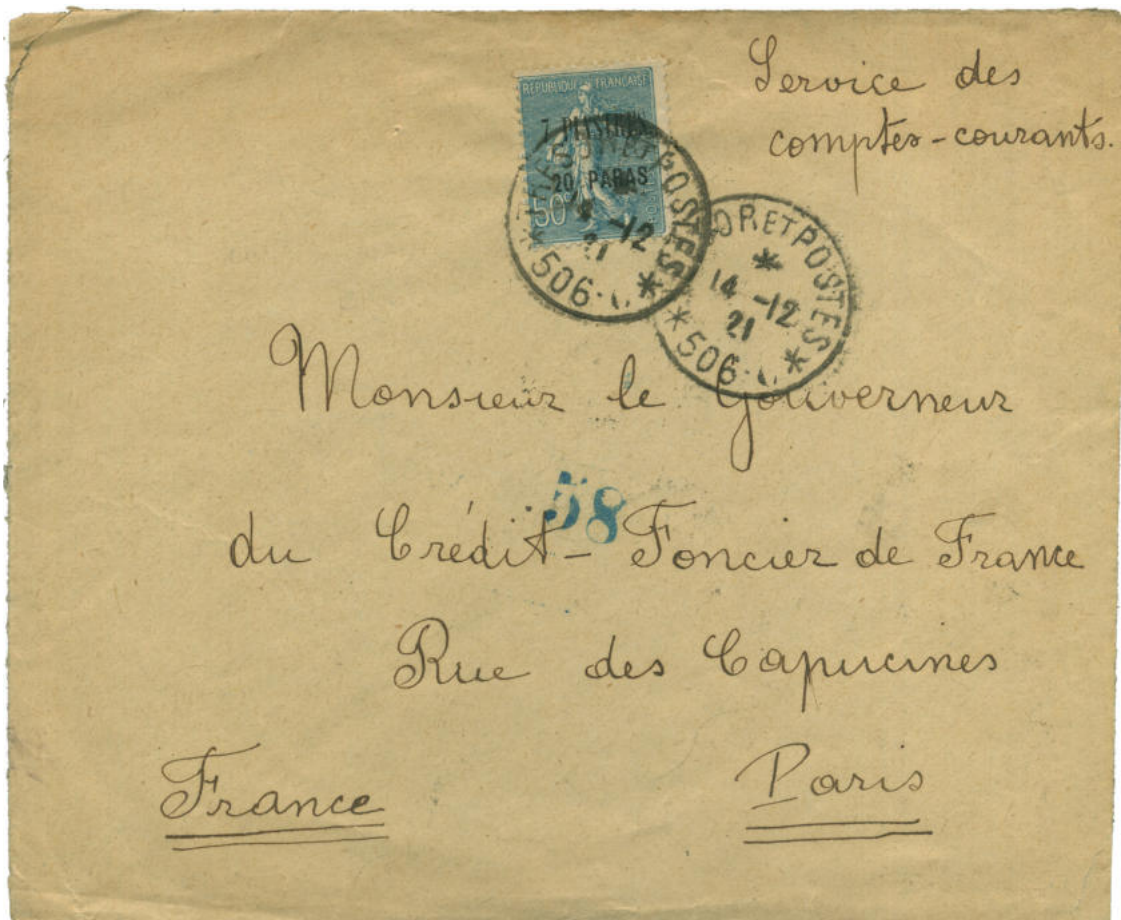 Service des
comptes-courants.
REPUBLIQUE FRANÇAISE
7 PIASTRES
20 PARAS
50
POSTES
-12
21
*506.
OR ET POSTES
*
14 -12
21
*506. *
Monsieur le Gouverneur
58
du Crédit-Foncier de France
Rue des Capucines
France Paris